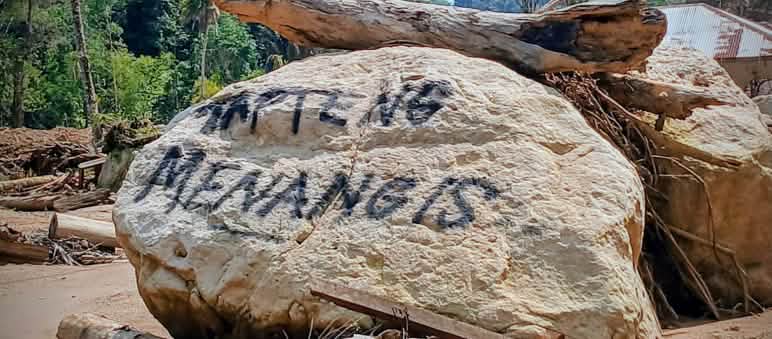 TAPTENG
MENANGIS